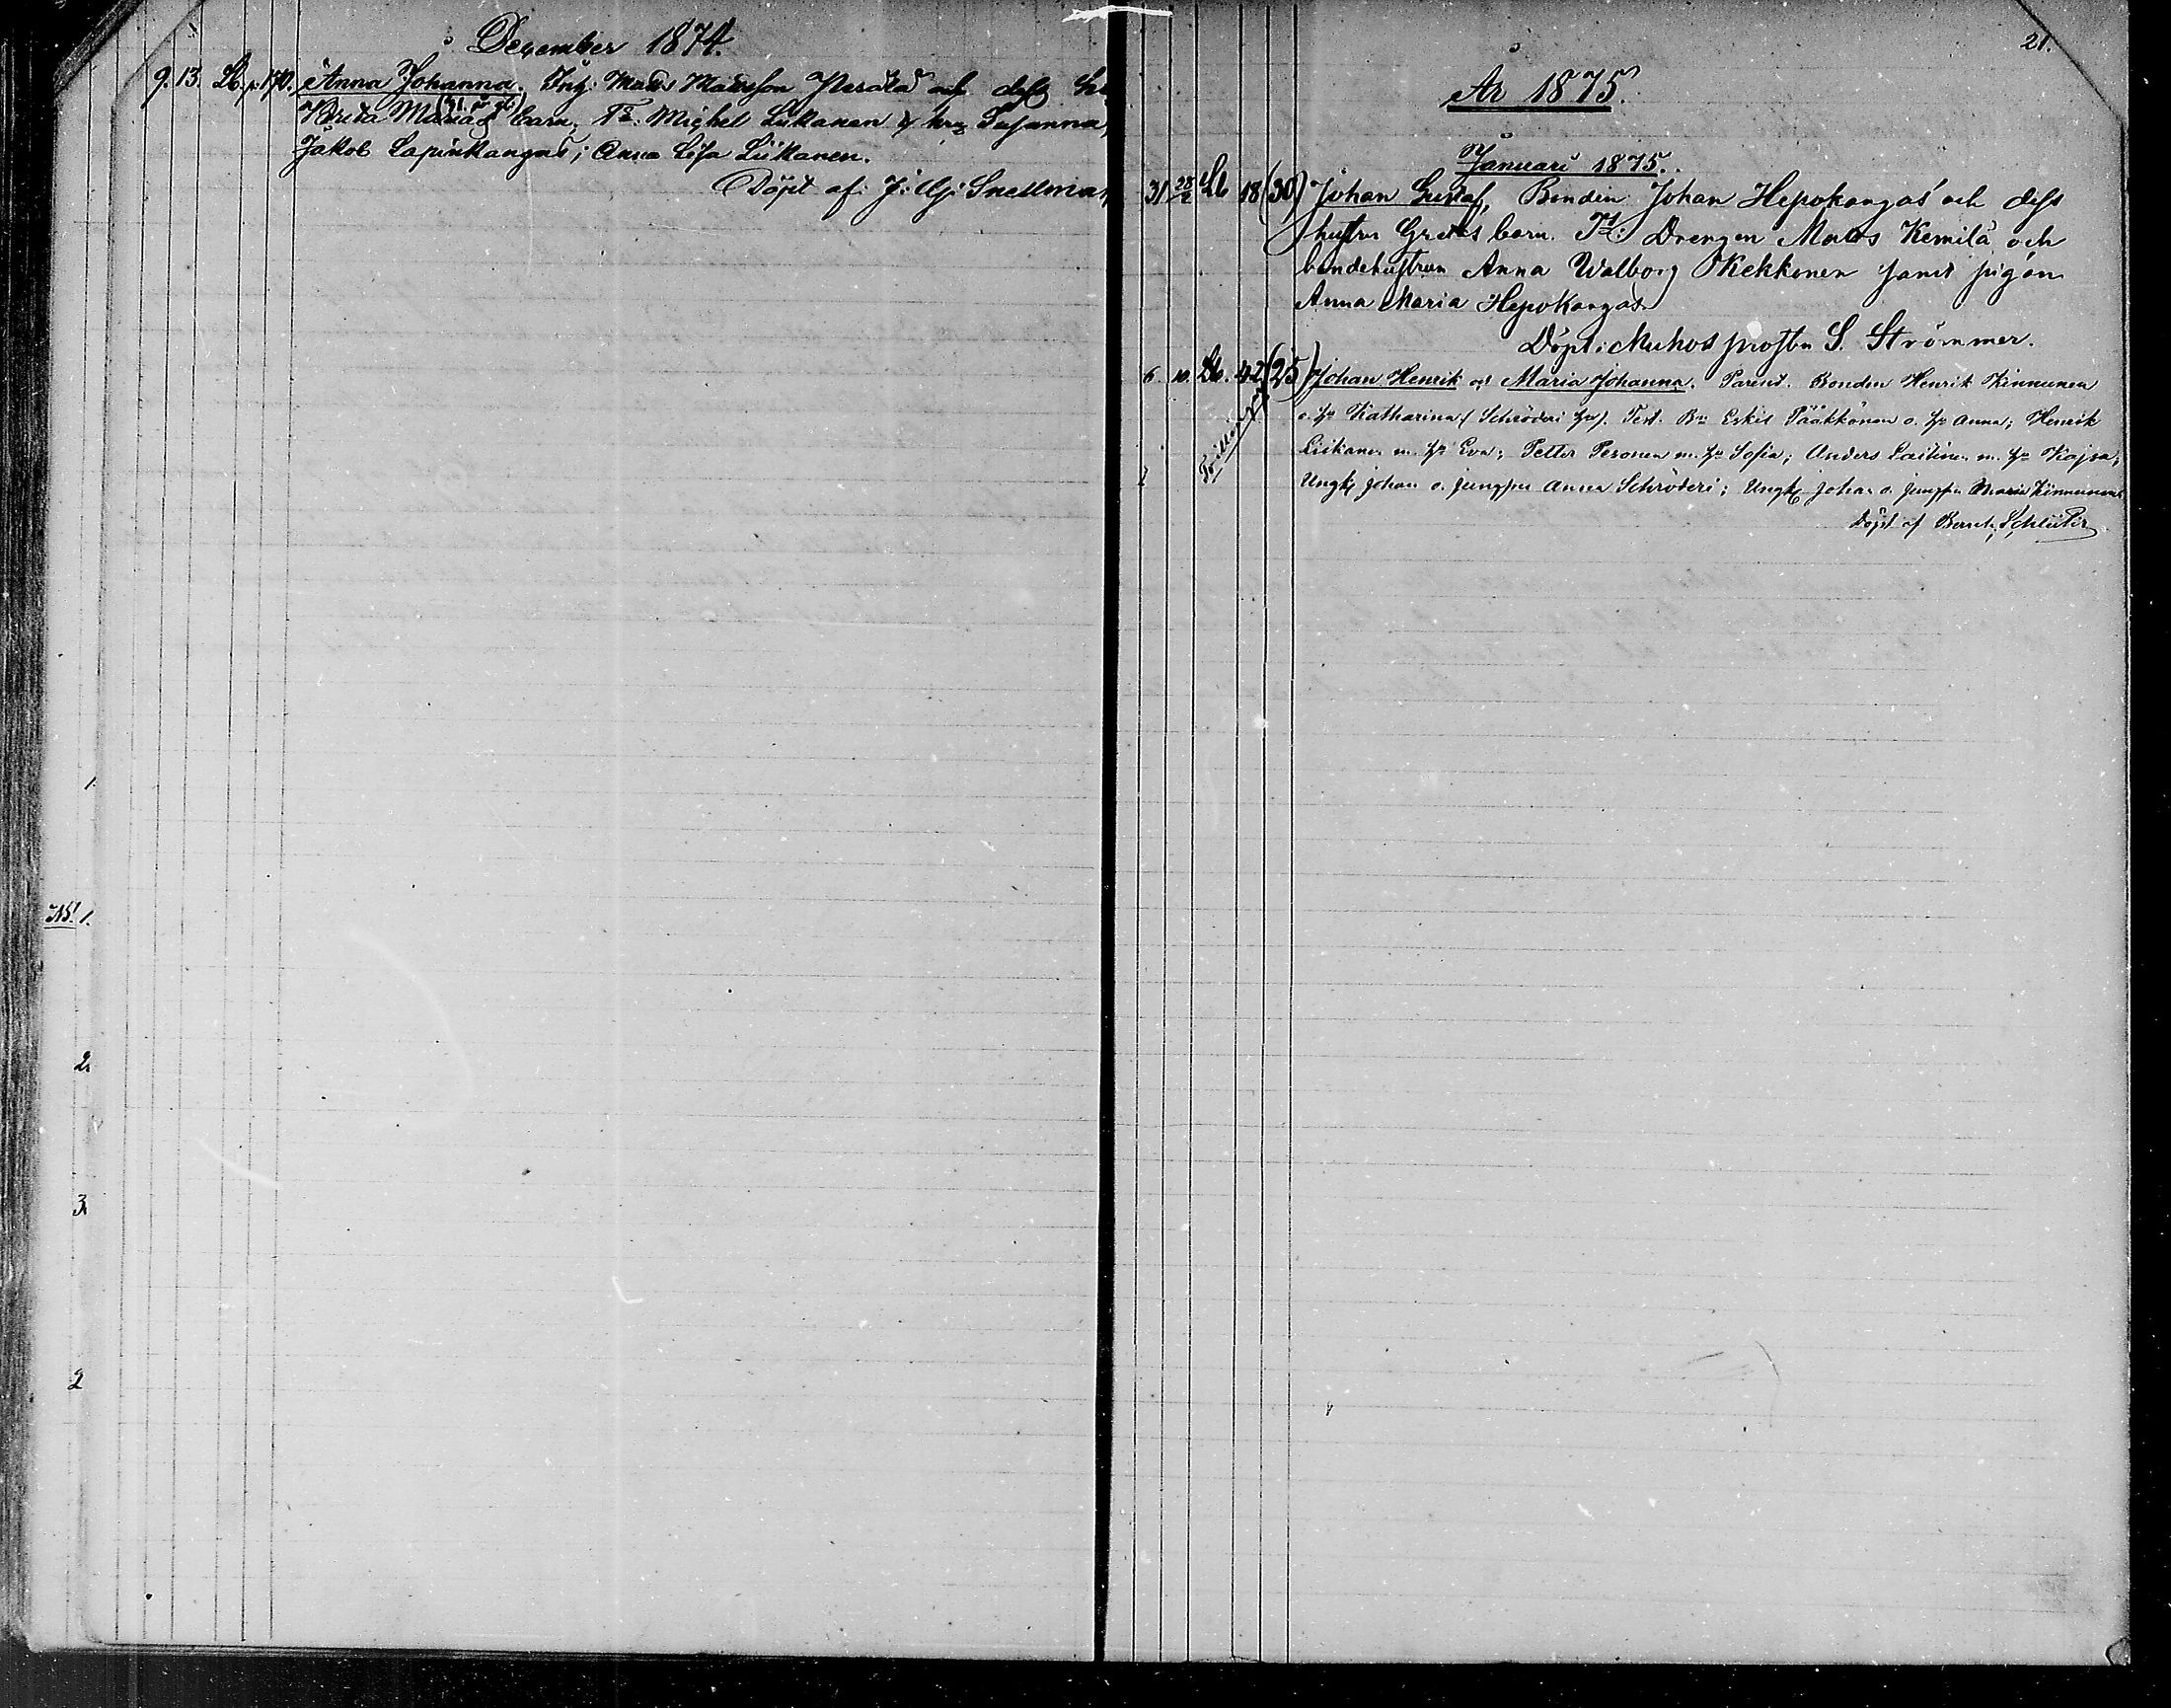 December 1874.
9. 13. Lb. p. 170. Anna Johanna. Inh: Mats Matsson Perälä och dess
Brita Marias barn. Ts: Michel Liikanen & hru Susanna,
Jakob Lapinkangas; Anna Lisa Liikanen.
Döpt af: J: Snellman
1.
NB! 1.
2.
3
2
21.
År 1875.
Januari 1875.
31 28/2 Lb 18 (30) Johan Gustaf, Bonden Johan Hepokangas och dess
hustru Gretas barn. Ts: Drengen Mats Kemilä och
bondehustrun Anna Walborg Kekkonen samt pigan
Anna Maria Hepokangas.
Döpt i Muhos prosten S. Strömmer.
6. 10. Lb. 42 (25) Johan Henrik och Maria Johanna. Parent. Bonden Henrik Kinnunen
o. h:u Katharina (Schröderi ). Test. B:n Eskil Pääkkönen o. h:u Anna; Henrik
Liikanen m. h:u Eva; Petter Peronen m. h:u Sofia; Anders Laitinen m. h:u Kajsa;
Ungk. Johan o. jungfru Anna Schröderi; Ungk. Johan o. jungfru Maria Kinnunen.
Döpt af Bernh. Schlüter
Tvillingar